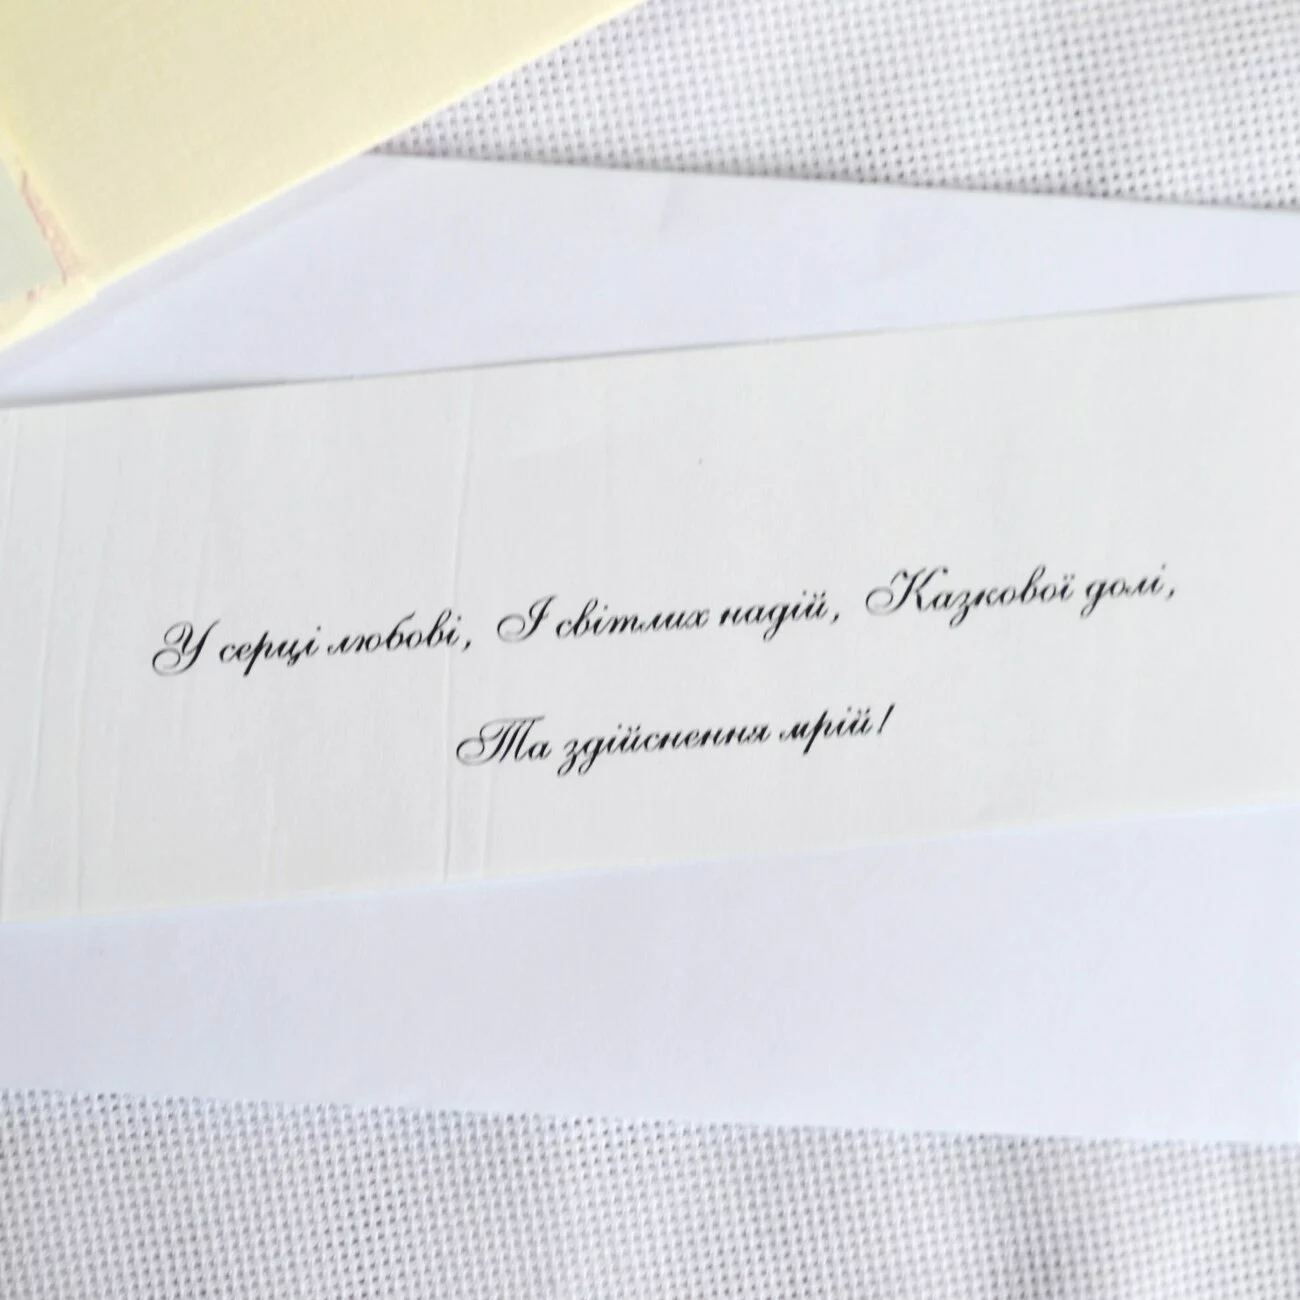 У серці любові, І світлих надій, Казкової долі,
Та здійснення мрій!